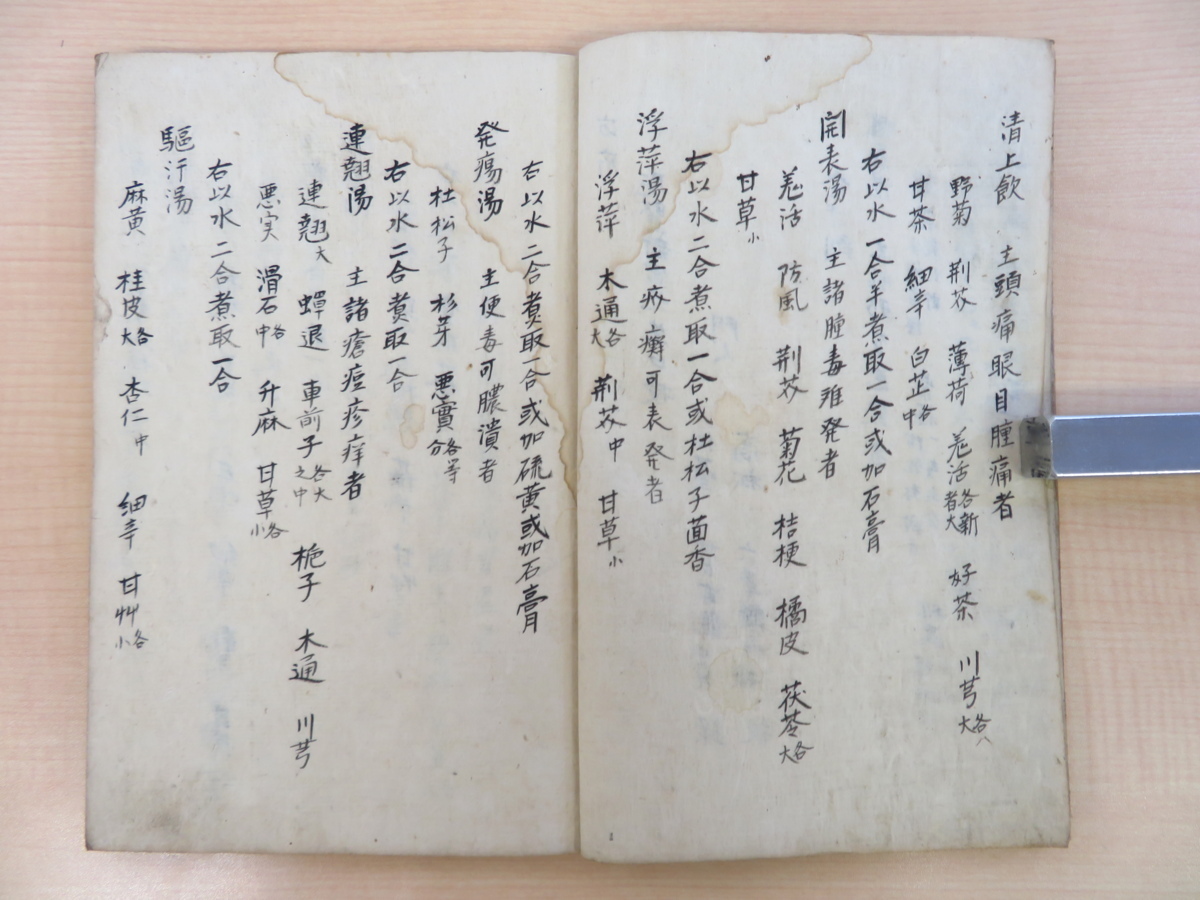 清上飲　主頭痛眼目腫痛者
野菊　荆芥　薄荷　羌活各大新者　好茶　川芎各大
甘茶　細辛　白芷各中
右以水一合半煮取一合或加石膏
開表湯　主諸腫毒難発者
羌活　防風　荆芥　菊花　桔梗　橘皮　茯苓各大
甘草小
右以水二合煮取一合或杜松子茴香
浮萍湯　主疥癬可表発者
浮萍　木通各大　荆芥中　甘草小
右以水二合煮取一合或加硫黄或加石膏
発瘍湯　主便毒可膿潰者
杜松子　杉芽　悪實各等分
右以水二合煮取一合
連翹湯　主諸瘡痘疹痒者
連翹大　蟬退　車前子各大之中　梔子　木通　川芎
悪実　滑石各中　升麻　甘草各小
右以水二合煮取一合
驅汗湯
麻黄　桂皮各大　杏仁中　細辛　甘艸各小